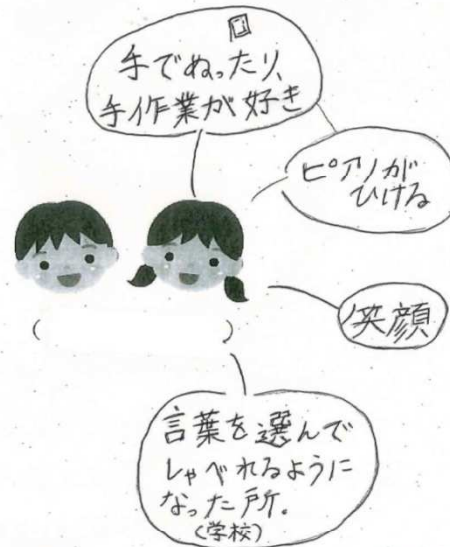 手でぬったり、
手作業が好き
ピアノが
ひける
笑顔
(　　　)
言葉を選んで
しゃべれるように
なった所。
(学校)